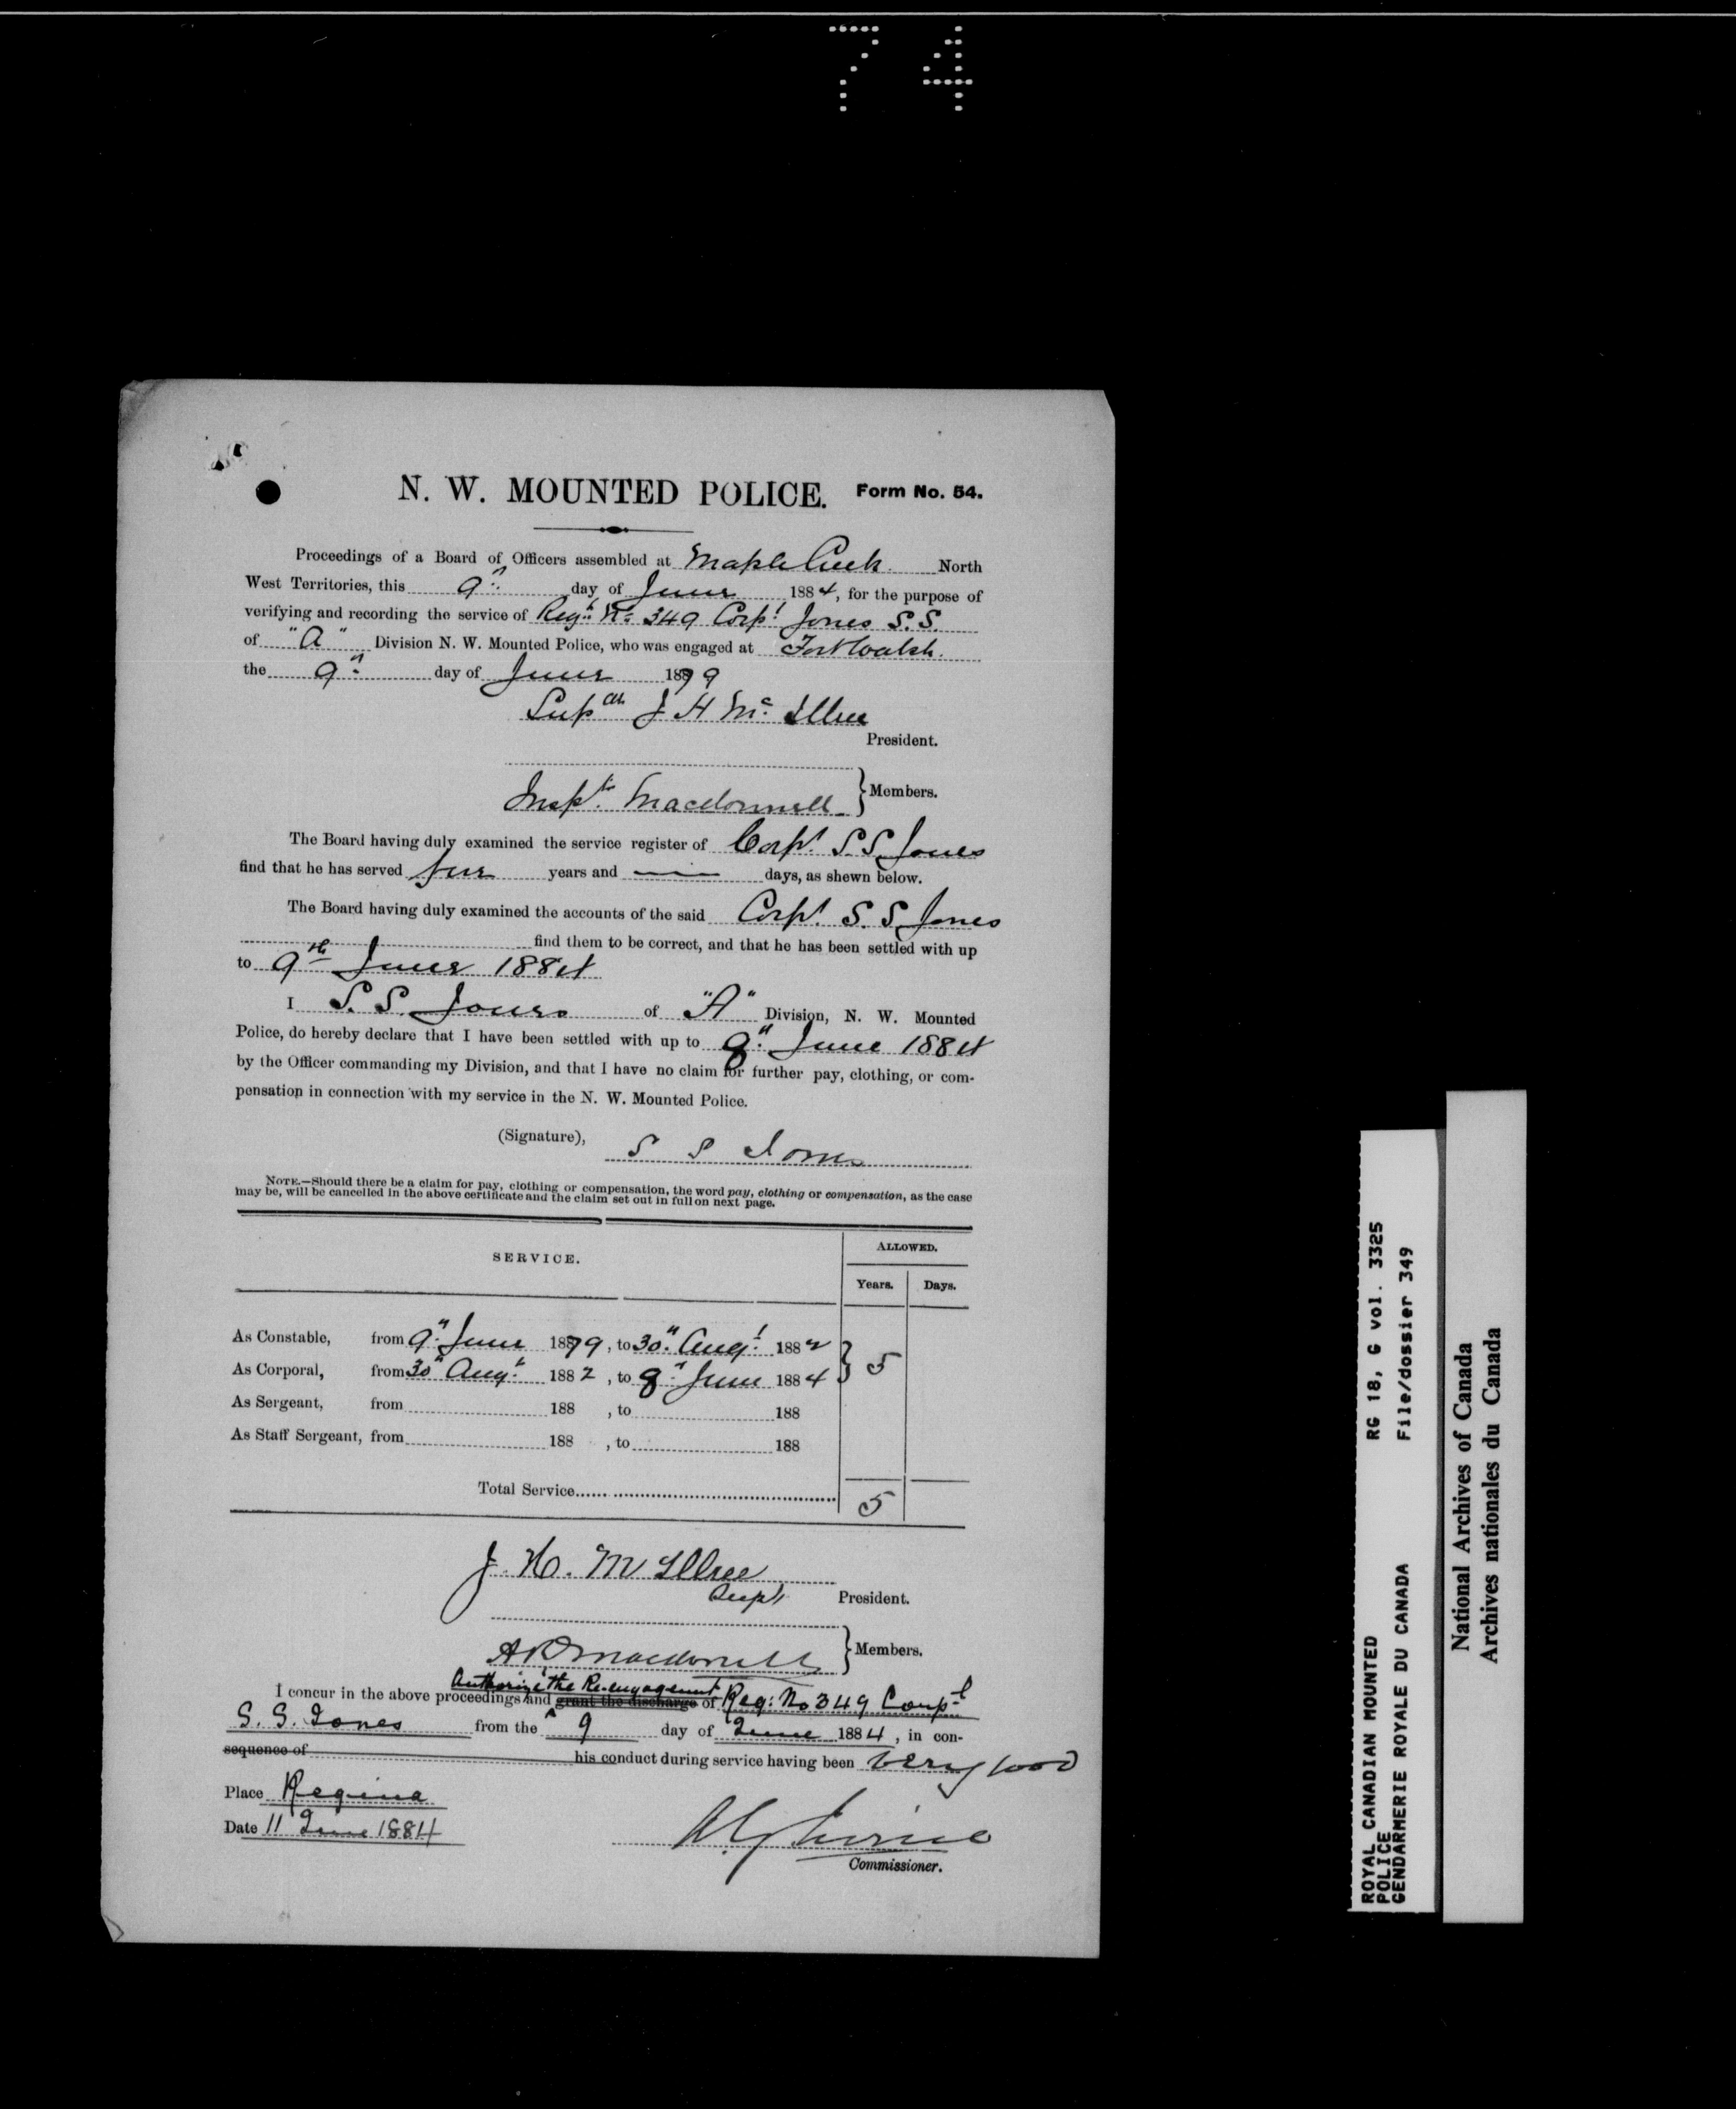 74
N. W. MOUNTED POLICE. Form No. 54.
Proceedings of a Board of Officers assembled at Maple Creek North
West Territories, this 9" day of June 1884, for the purpose of
verifying and recording the service of Reg. No 349 Corpl Jones S.S.
of "A" Division N. W. Mounted Police, who was engaged at Fort Walsh.
the 9" day of June 1879
Supdt J H McIllree
President.
Inspr. Macdonnell } Members.
The Board having duly examined the service register of Corpl. S.S. Jones
find that he has served five years and — days, as shewn below.
The Board having duly examined the accounts of the said Corpl. S. S. Jones
find them to be correct, and that he has been settled with up
to 9th June 1884
I S. S. Jones of "A" Division, N. W. Mounted
Police, do hereby declare that I have been settled with up to 8" June 1884
by the Officer commanding my Division, and that I have no claim for further pay, clothing, or com-
pensation in connection with my service in the N. W. Mounted Police.
(Signature), S S Jones
NOTE.—Should there be a claim for pay, clothing or compensation, the word pay, clothing or compensation, as the case
may be, will be cancelled in the above certificate and the claim set out in full on next page.
SERVICE. ALLOWED.
Years. Days.
As Constable, from 9" June 1879, to 30" Augt 1882
As Corporal, from 30" Augt 1882, to 8" June 1884 } 5
As Sergeant, from 188 , to 188
As Staff Sergeant, from 188 , to 188
Total Service 5
J. H. McIllree
Supt President.
A R Macdonell } Members.
Authorize the Re-engagement
I concur in the above proceedings and grant the discharge of Reg: No 349 Corpl
S. S. Jones from the 9 day of June 1884, in con-
sequence of his conduct during service having been Very Good
Place Regina
Date 11 June 1884
A G Irvine
Commissioner.
ROYAL CANADIAN MOUNTED RG 18, G vol. 3325
POLICE
GENDARMERIE ROYALE DU CANADA File/dossier 349
National Archives of Canada
Archives nationales du Canada